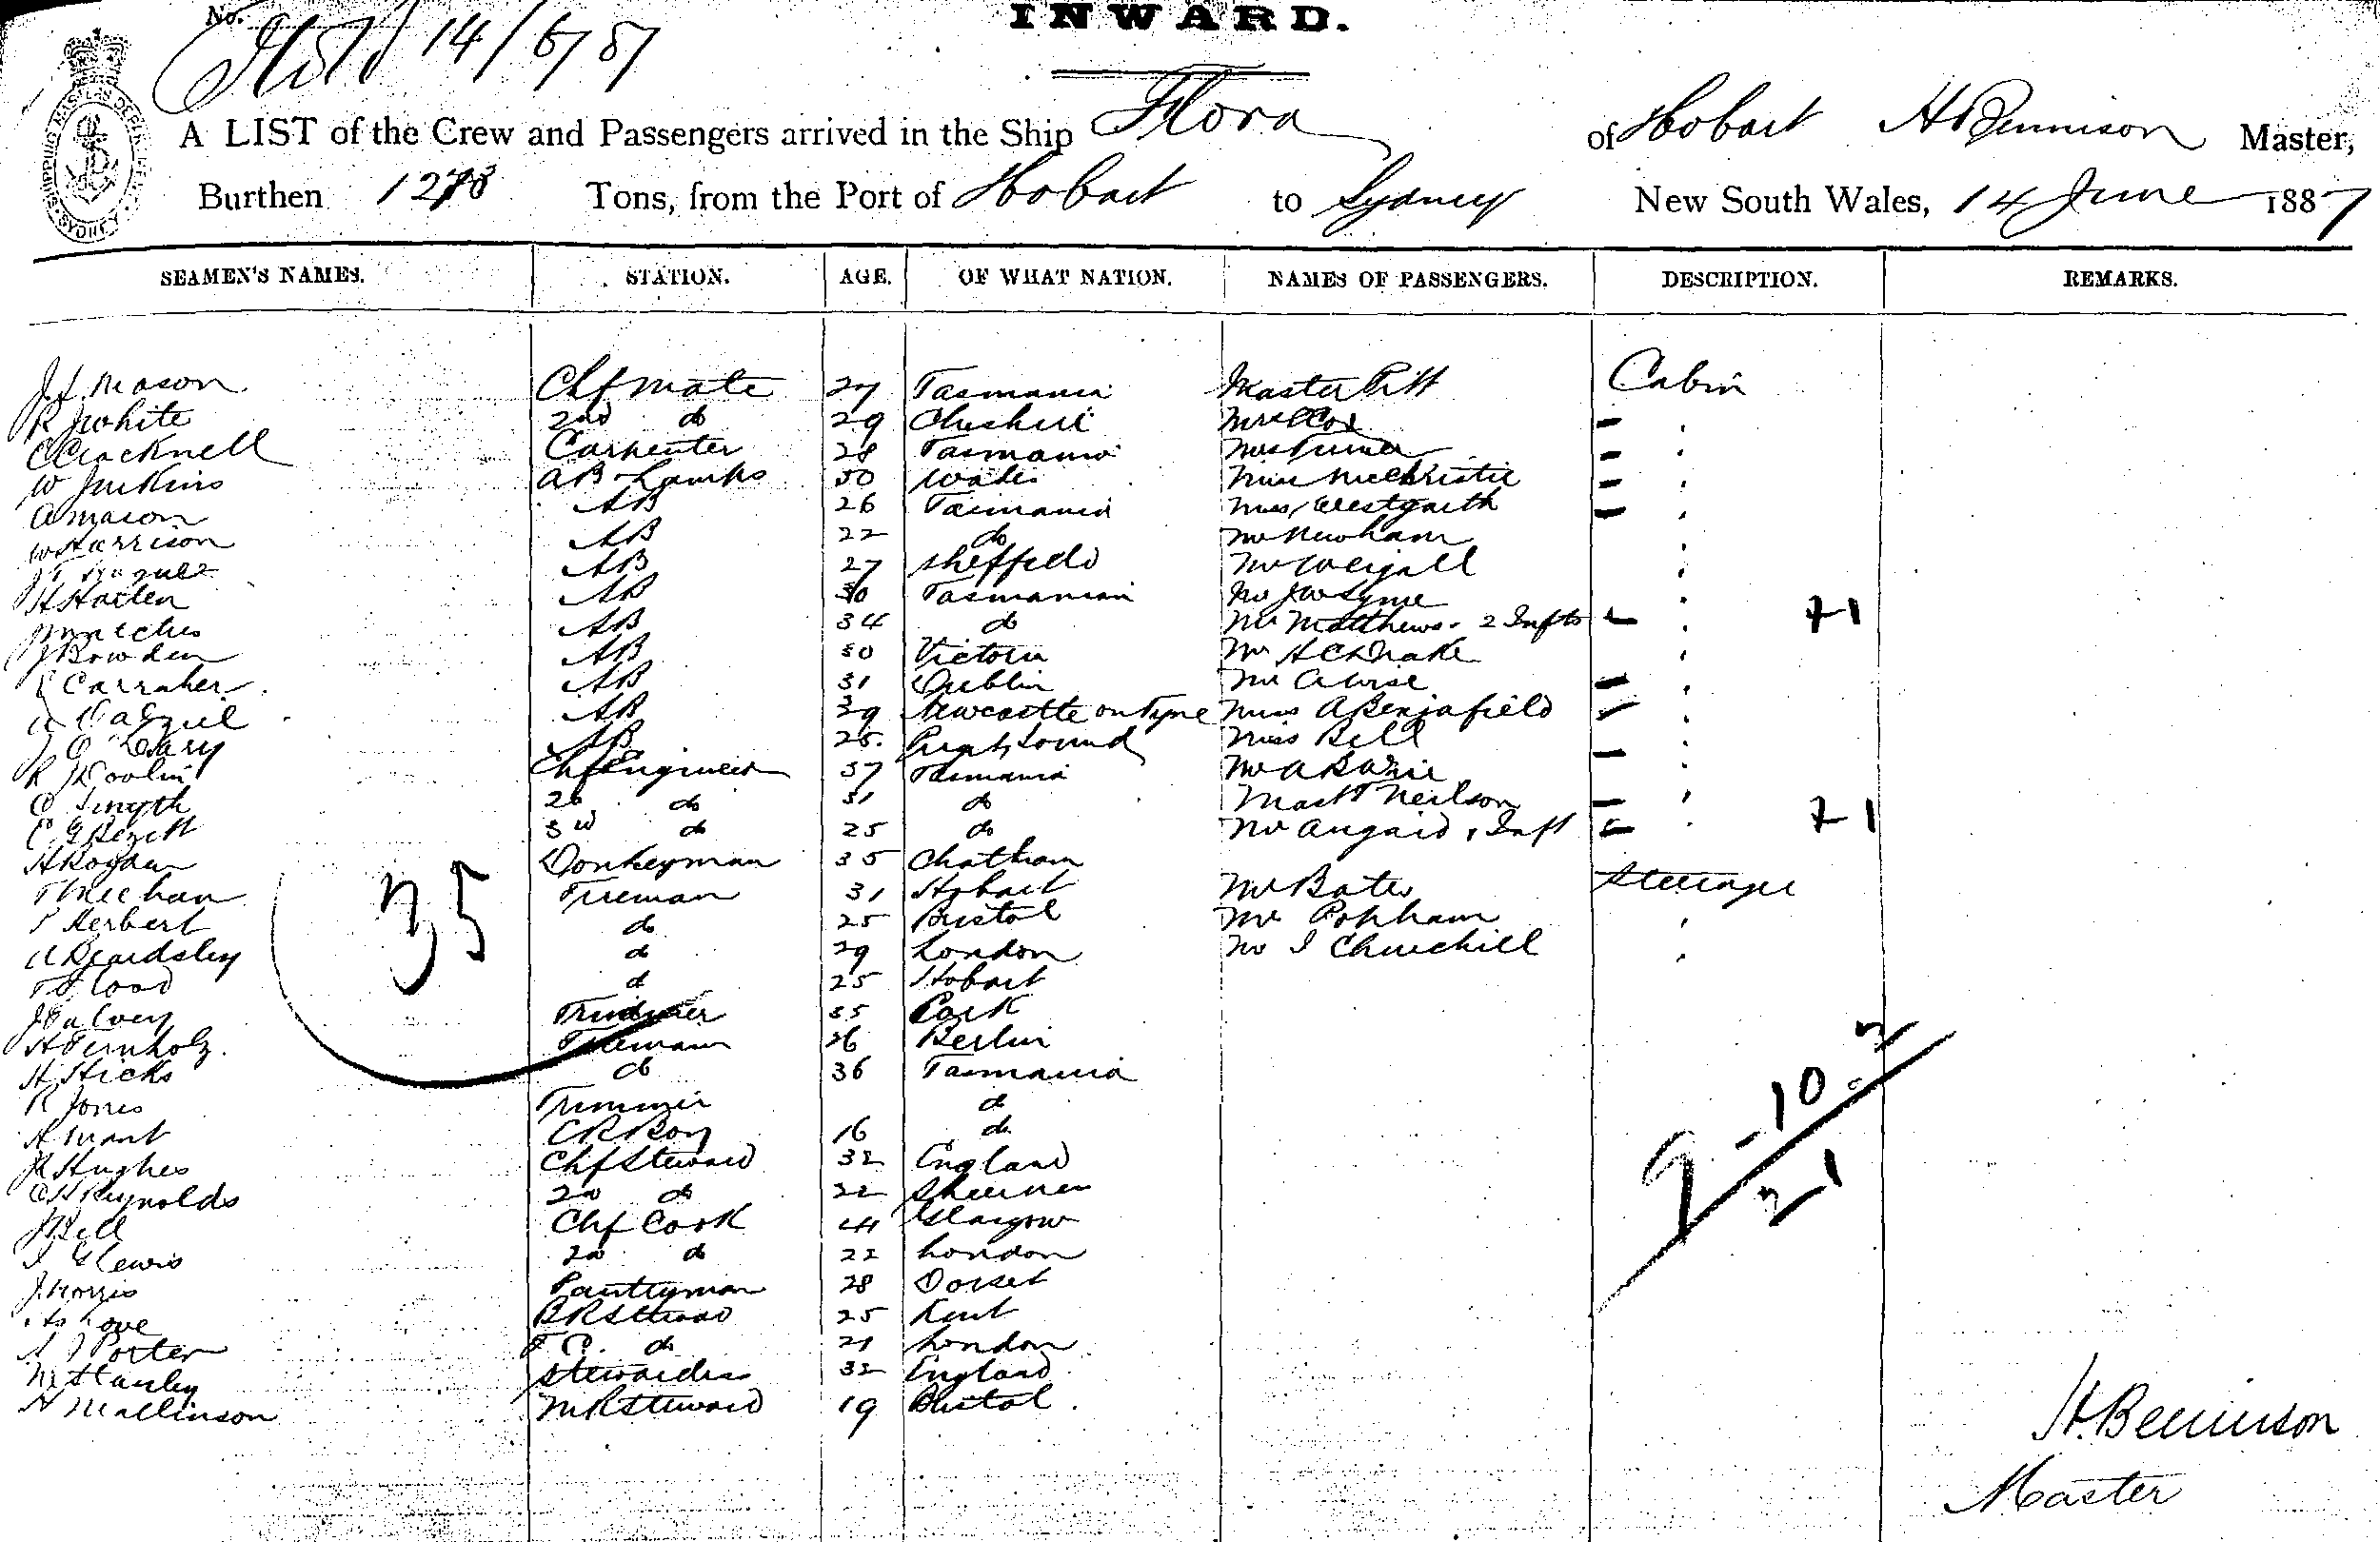 No.
14/6/87
INWARD.
A LIST of the Crew and Passengers arrived in the Ship Flora of Hobart H Bennison Master,
Burthen 1273 Tons, from the Port of Hobart to Sydney New South Wales, 14 June 1887
SEAMEN'S NAMES. STATION. AGE. OF WHAT NATION. NAMES OF PASSENGERS. DESCRIPTION. REMARKS.
Mason Chf mate 27 Tasmania Master Pitt Cabin
R White 2nd do 29 Cheshire Cox
C Cracknell Carpenter 28 Tasmania Mrs Turner
W Jenkins AB Lamps 50 Wales Miss McChristie
A Mason AB 26 Tasmania Miss Westgarth
W Harrison AB 22 do Mr Newham
AB 27 Sheffield Mr Weigall
H Harten AB 30 Tasmanian Mr J W Syme
AB 34 do Matthews 2 Infts 71
J Bowden AB 50 Victoria Mr H C Drake
Carraher AB 31 Dublin Mr A Wise
AB 29 Newcastle on Tyne Miss A Benjafield
J O'Leary AB 25 Miss Bell
R Chf Engineer 37 Tasmania Mr
C Smyth 2d do 31 do Mast Neilson
3rd do 25 do Inft 71
H Rogan Donkeyman 35 Chatham
T Meehan Fireman 31 Hobart Mr Bates Steerage
Herbert do 25 Bristol Mr Popham
Beardsley do 29 London Mr I Churchill
T Flood do 25 Hobart
35
J Galvey Trimmer 35 Cork
H Bernholz Fireman 26 Berlin
H Hicks do 36 Tasmania
R Jones Trimmer do
A Mant CR Boy 16 do
Hughes Chf Steward 32 England
C H Reynolds 2nd do 22
J Bell Chf Cook 41 Glasgow
Lewis 2nd do 22 London
J Norris Pantryman 28 Dorset
Love BR Steward 25 Kent
Porter F.C. do 21 London
M Stanley Stewardess 32 England
H Mallinson MR Steward 19 Bristol
9 - 10 3
21
H. Bennison
Master